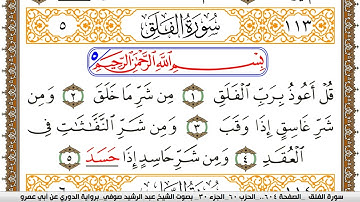 ١١٣ سُورَةُ الفَلَقِ ٥
بِسْمِ اللَّهِ الرَّحْمَٰنِ الرَّحِيمِ
قُلْ أَعُوذُ بِرَبِّ الْفَلَقِ ١ مِن شَرِّ مَا خَلَقَ ٢ وَمِن
شَرِّ غَاسِقٍ إِذَا وَقَبَ ٣ وَمِن شَرِّ النَّفَّٰثَٰتِ فِى
الْعُقَدِ ٤ وَمِن شَرِّ حَاسِدٍ إِذَا حَسَدَ ٥
سورة الفلق _الصفحة ٦٠٤.. الحزب ٦٠_الجزء ٣٠_ بصوت الشيخ عبد الرشيد صوفي_برواية الدوري عن أبي عمرو